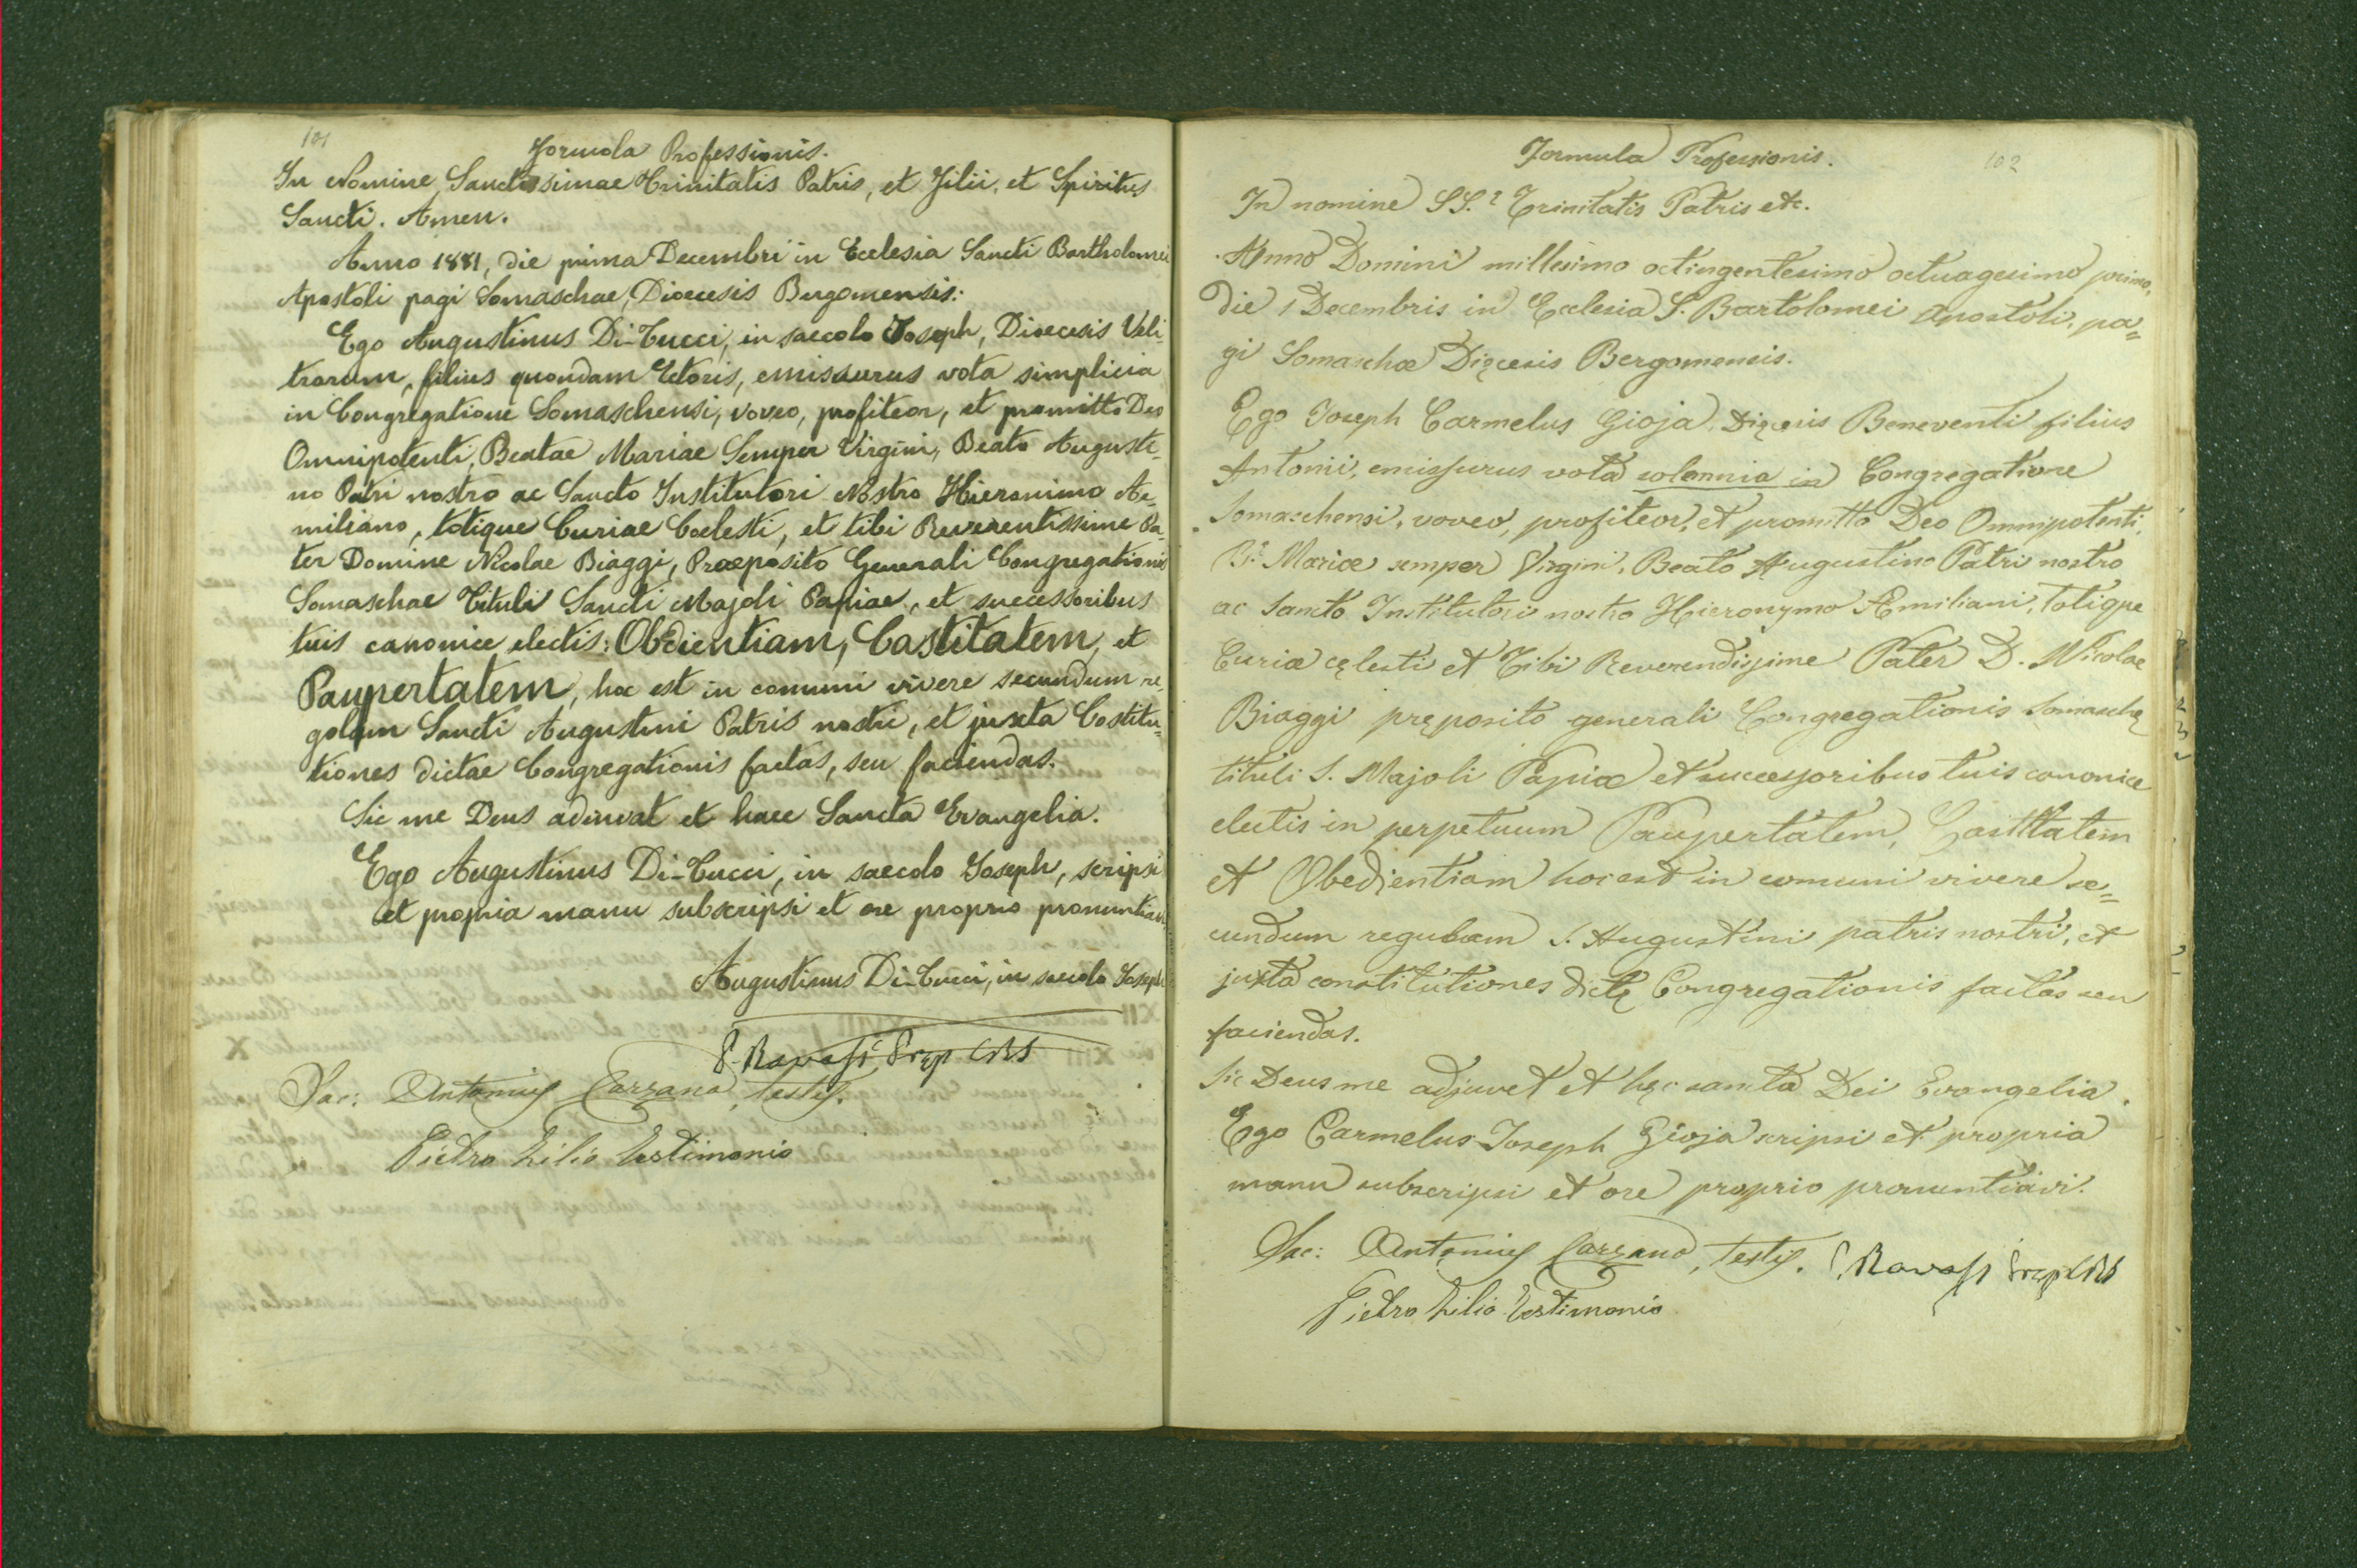 101
Formola Professionis.
In Nomine Sanctissimae Trinitatis Patris, et Filii, et Spiritus
Sancti. Amen.
Anno 1881, die prima Decembri in Ecclesia Sancti Bartholomei
Apostoli pagi Somaschae, Dioecesis Bergomensis:
Ego Augustinus Di-Tucci, in saecolo Joseph, Dioecesis Veli-
trarum, filius quondam Etoris, emissurus vota simplicia
in Congregatione Somaschensi, voveo, profiteor, et promitto Deo
Omnipotenti, Beatae Mariae Semper Virgini, Beato Augusti-
no Patri nostro ac Sancto Institutori Nostro Hieronimo Ae-
miliano, totique Curiae Coelesti, et tibi Reverentissime Pa-
ter Domine Nicolae Biaggi, Praeposito Generali Congregationis
Somaschae Tituli Sancti Majoli Papiae, et successoribus
tuis canonice electis: Obedientiam, Castitatem, et
Paupertatem, hoc est in comuni vivere secundum re-
golam Sancti Augustini Patris nostri, et juxta Costitu=
tiones dictae Congregationis factas, seu faciendas.
Sic me Deus adiuvat et haec Sancta Evangelia.
Ego Augustinus Di-Tucci, in saecolo Joseph, scripsi
et propria manu subscripsi et ore proprio pronuntiavi
Augustinus Di-Tucci, in saecolo Joseph
P. Ravasi Prep CRS
Sac: Antonius Carzana, testis.
Pietro Lilio Testimonio
102
Formula Professionis.
In nomine SS.e Trinitatis Patris etc.
Anno Domini millesimo octingentesimo octuagesimo primo,
die 1 Decembris in Ecclesia S. Bartolomei Apostoli, pa=
gi Somaschæ Dięcesis Bergomensis.
Ego Joseph Carmelus Gioja Dięcesis Beneventi filius
Antonii, emissurus vota solemnia in Congregatione
Somaschensi, voveo, profiteor, et promitto Deo Omnipotenti,
B. Mariæ semper Virgini, Beato Augustino Patri nostro
ac Sancto Institutori nostro Hieronymo Æmiliani, totique
Curiæ cęlesti et Tibi Reverendissime Pater D. Nicolae
Biaggi pręposito generali Congregationis Somaschę
tituli S. Majoli Papiæ et successoribus tuis canonice
electis in perpetuum Paupertatem, Castitatem
et Obedientiam hoc est in comuni vivere se=
cundum regulam S. Augustini patris nostri, et
juxta constitutiones dictę Congregationis factas seu
faciendas.
Sic Deus me adjuvet et hęc sancta Dei Evangelia.
Ego Carmelus Joseph Gioja scripsi et propria
manu subscripsi et ore proprio pronuntiavi.
Sac: Antonius Carzana, testis. P. Ravasi Prep CRS
Pietro Lilio Testimonio